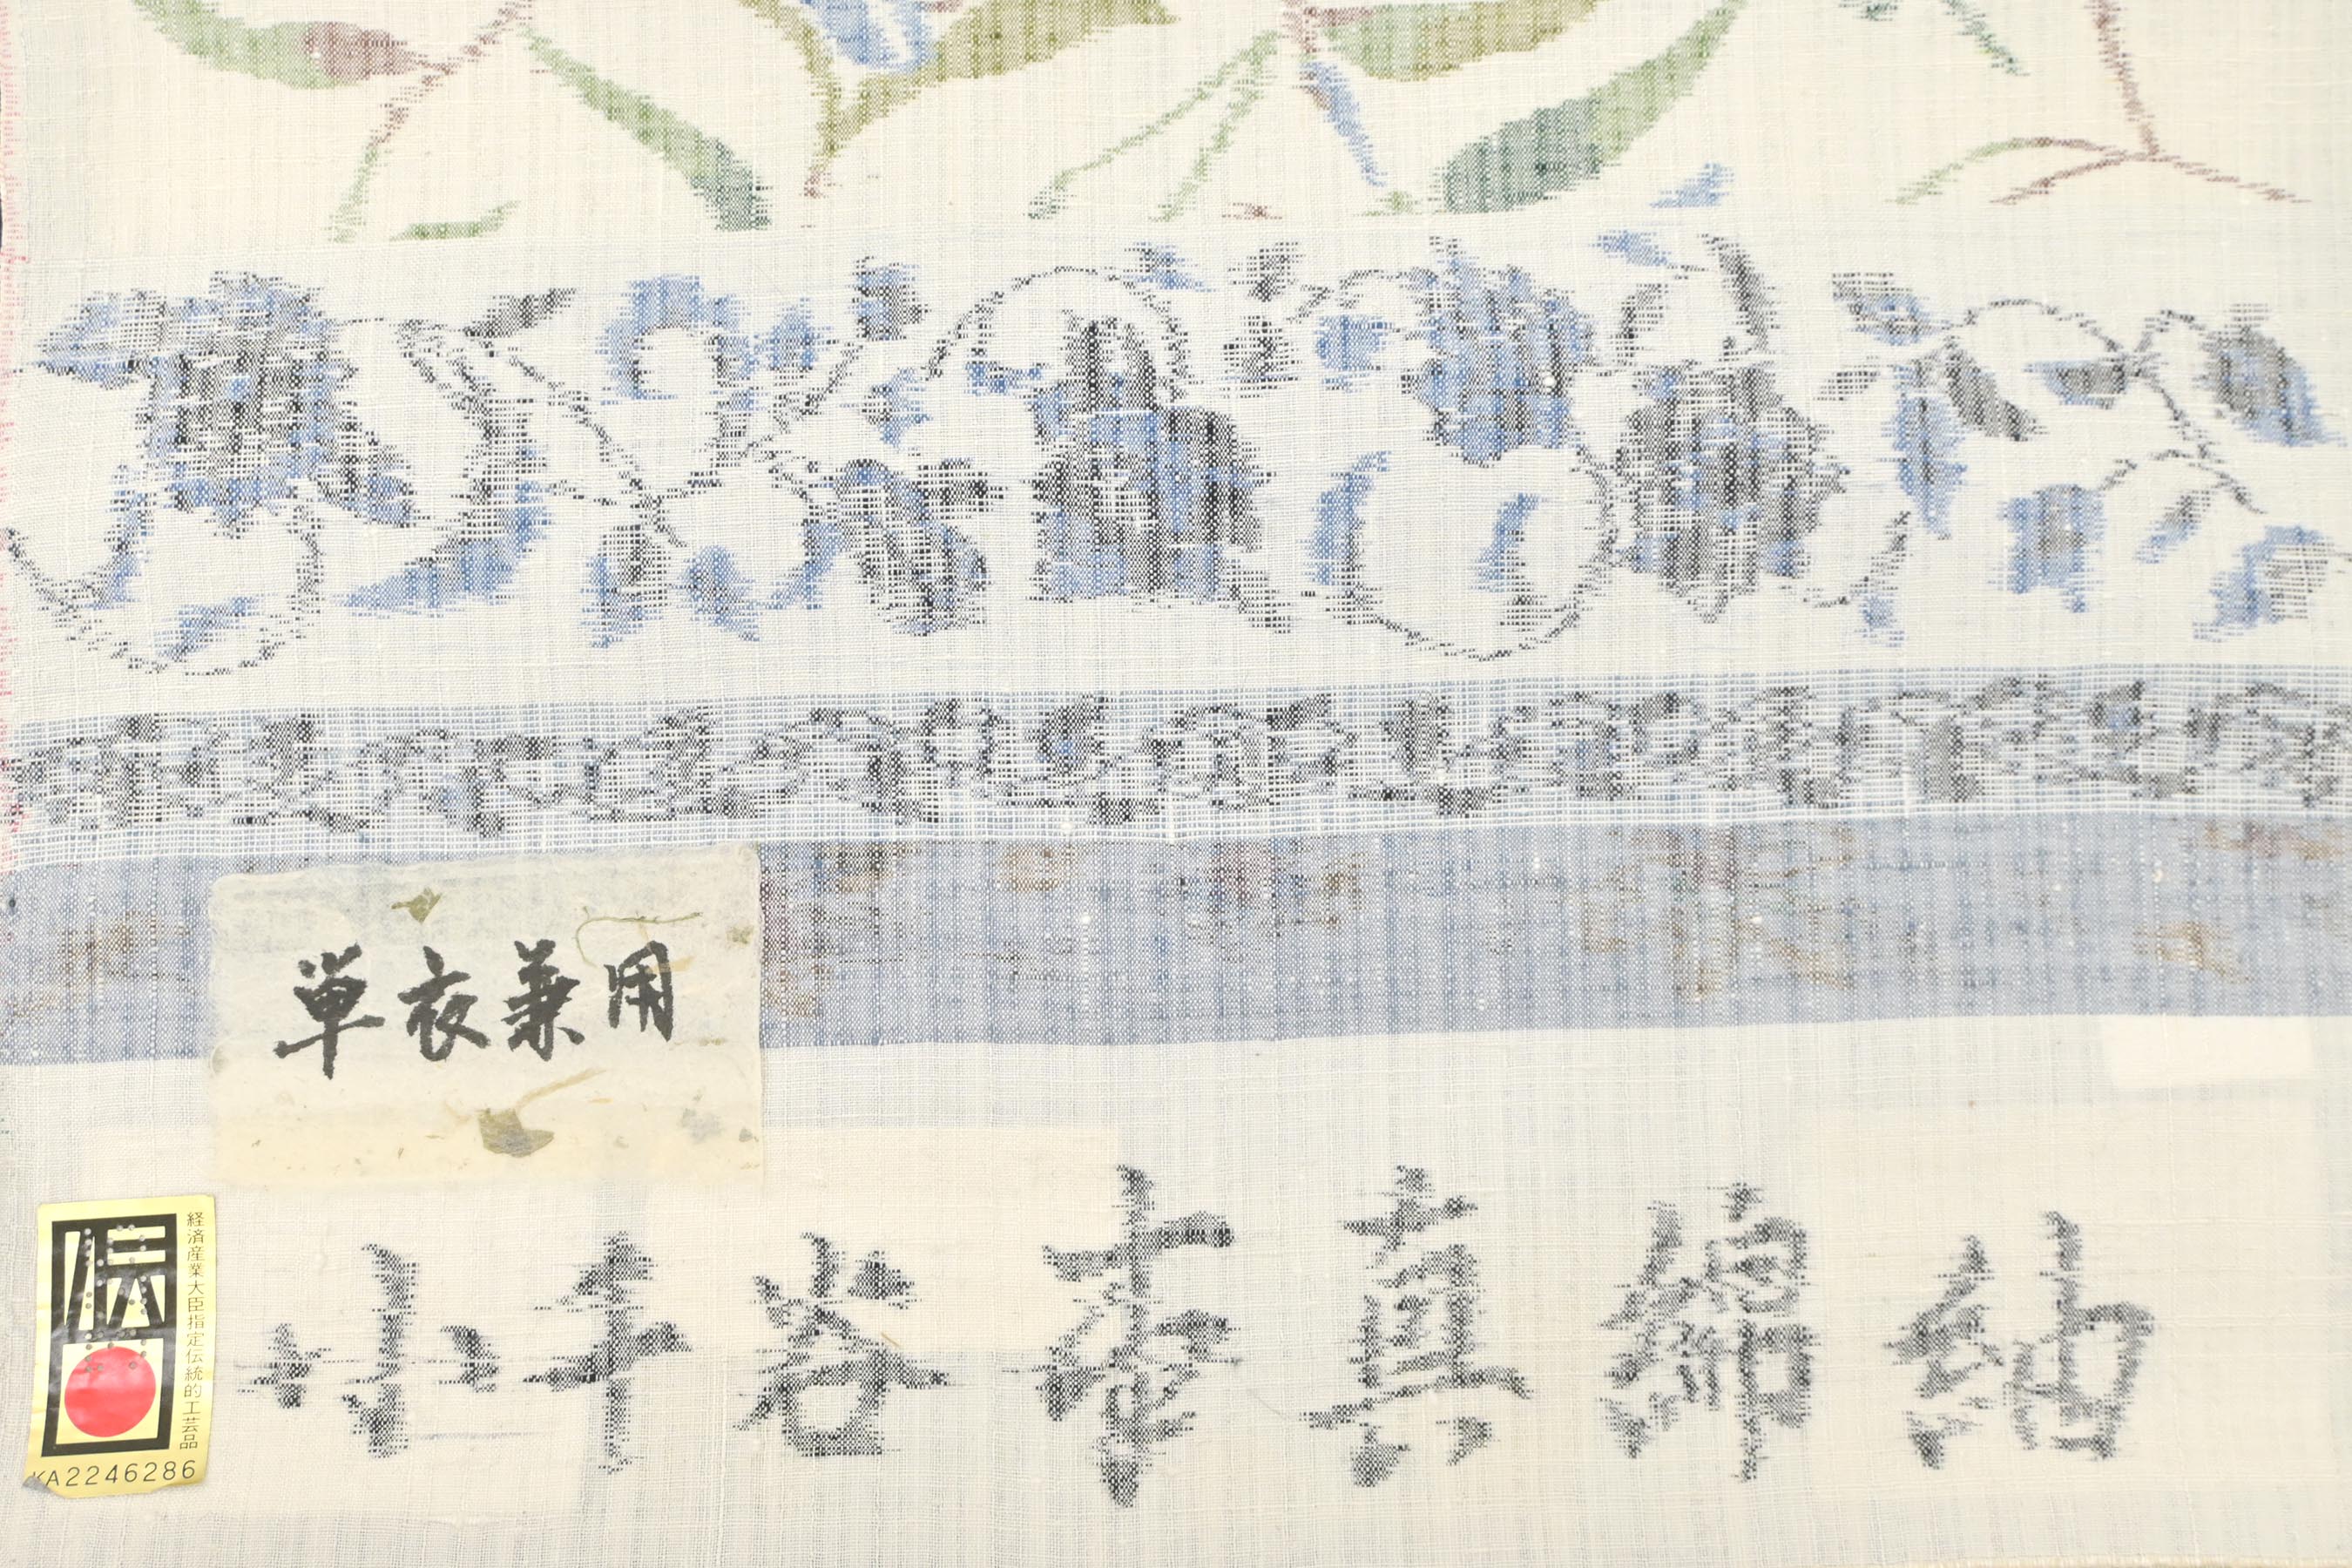 単衣兼用
伝
経済産業大臣指定伝統的工芸品
KA2246286
小千谷 真綿紬